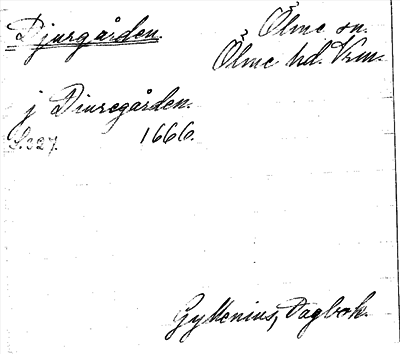 Djurgården.
Ölme sn.
Ölme hd. Vrm.
j Diuregården.
S. 327. 1666.
Gyllenius, Dagbok.